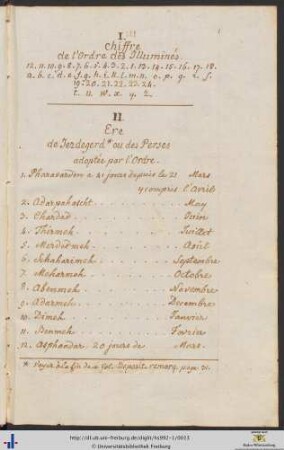 I.
Chiffre
de l'Ordre des Illuminés.
12. 11. 10. 9. 8. 7. 6. 5. 4. 3. 2. 1. 13. 14. 15. 16. 17. 18.
a. b. c. d. e. f. g. h. i. k. l. m. n. o. p. q. r. s.
19. 20. 21. 22. 23. 24.
t. u. w. x. y. z.
II.
Ere
de Jezdegerd * ou des Perses
adoptée par l'Ordre.
1. Pharavardin a 41 jours depuis le 21 Mars
y compris l'Avril
2. Adarpahascht . . . . . May
3. Chardad . . . . . Juin
4. Thirmeh . . . . . Juillet
5. Merdedmeh . . . . . Août
6. Schaharimeh . . . . . Septembre
7. Meharmeh . . . . . Octobre
8. Abenmeh . . . . . Novembre
9. Adarmeh . . . . . Decembre
10. Dimeh . . . . . Janvier
11. Benmeh . . . . . Fevrier
12. Asphandar 20 jours de Mars.
* Voyez à la fin de
remarq. page
http://dl.ub.uni-freiburg.de/diglit/hs992-1/0023
© Universitätsbibliothek Freiburg